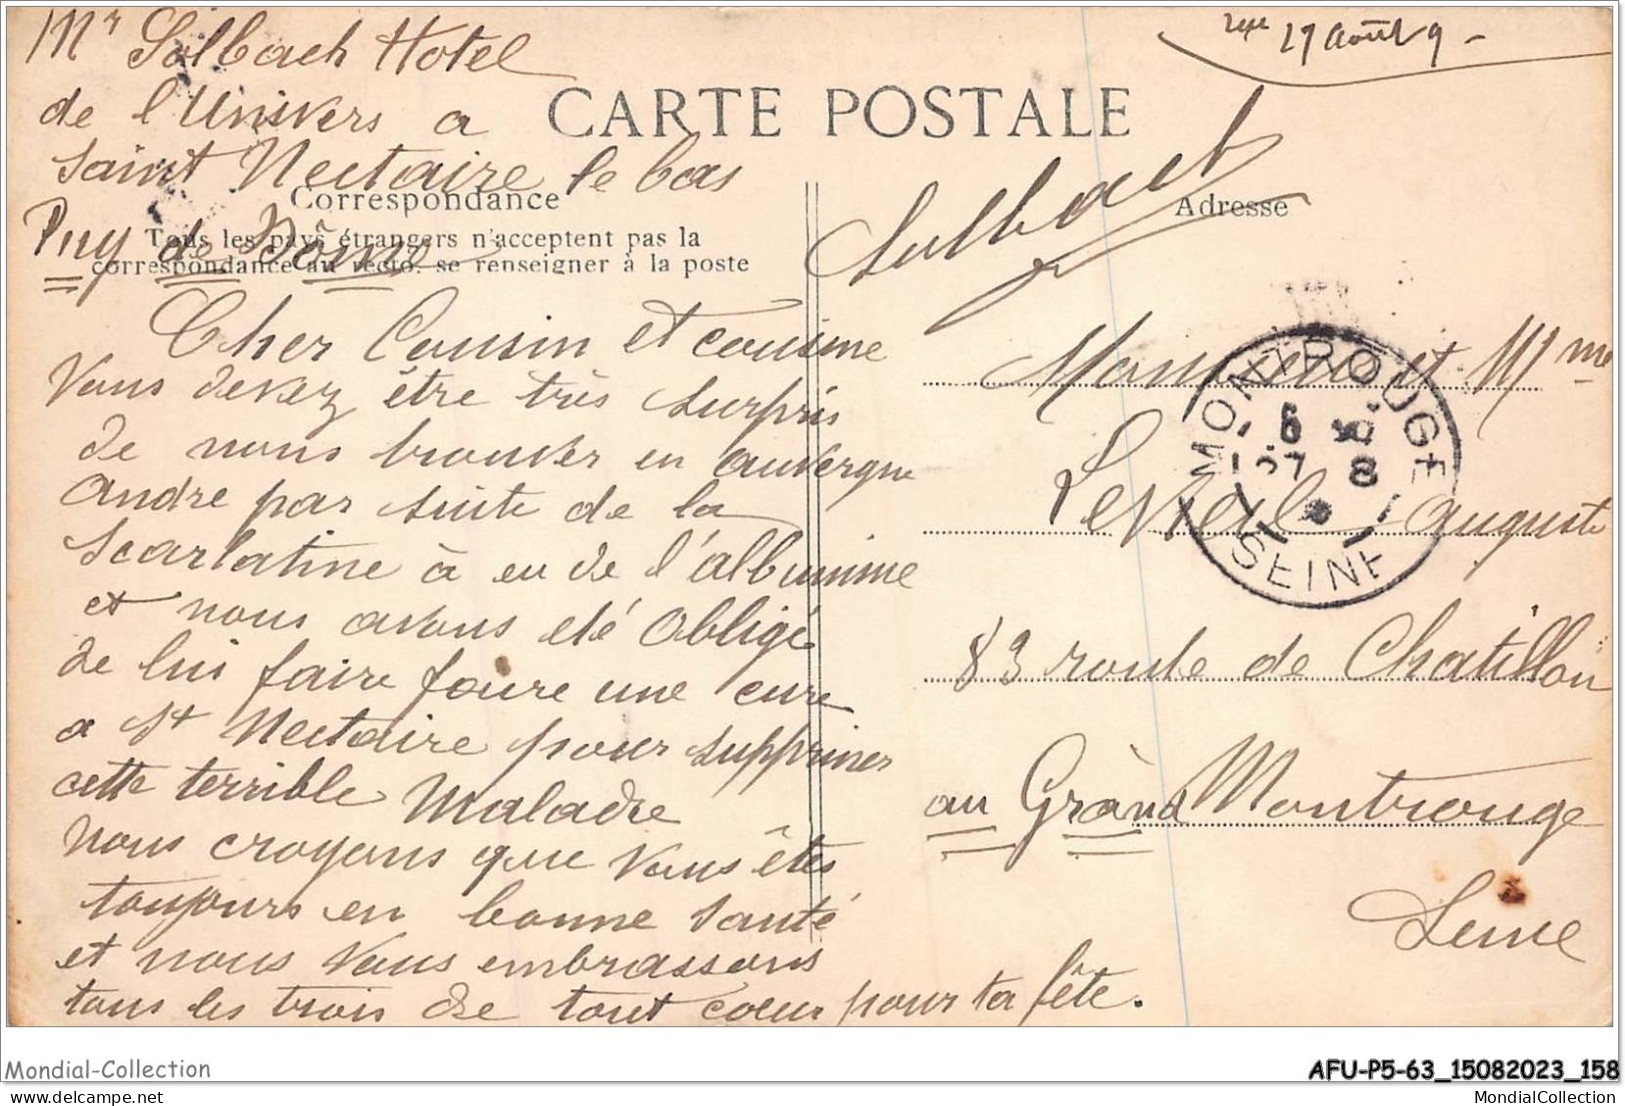 Mr Salbach Hotel
de l'Univers a
Saint Nectaire le bas
Puy de Dôme
27 août 9 -
CARTE POSTALE
Correspondance
Tous les pays étrangers n'acceptent pas la
correspondance au recto. se renseigner à la poste
Adresse
Salbach
Cher Cousin et cousine
Vous devez être très surpris
de nous trouver en auvergne
andre par suite de la
scarlatine à eu de l'albumine
et nous avons été obligé
de lui faire foure une cure
a St Nectaire pour supprimer
cette terrible Maladie
nous croyons que vous êtes
toujours en bonne santé
et nous vous embrassons
tous les trois de tout coeur pour ta fête.
Monsieur et Mme
Leveil auguste
83 route de Chatillon
au Grànd Montrouge
Seine
MONTROUGE
6
27 8
SEINE
Mondial-Collection
AFU-P5-63_15082023_158
MondialCollection.com